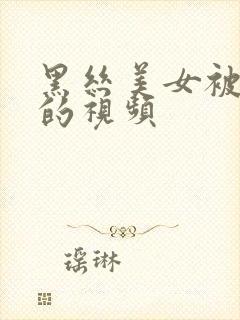 黑丝美女被
的視頻
瑶琳